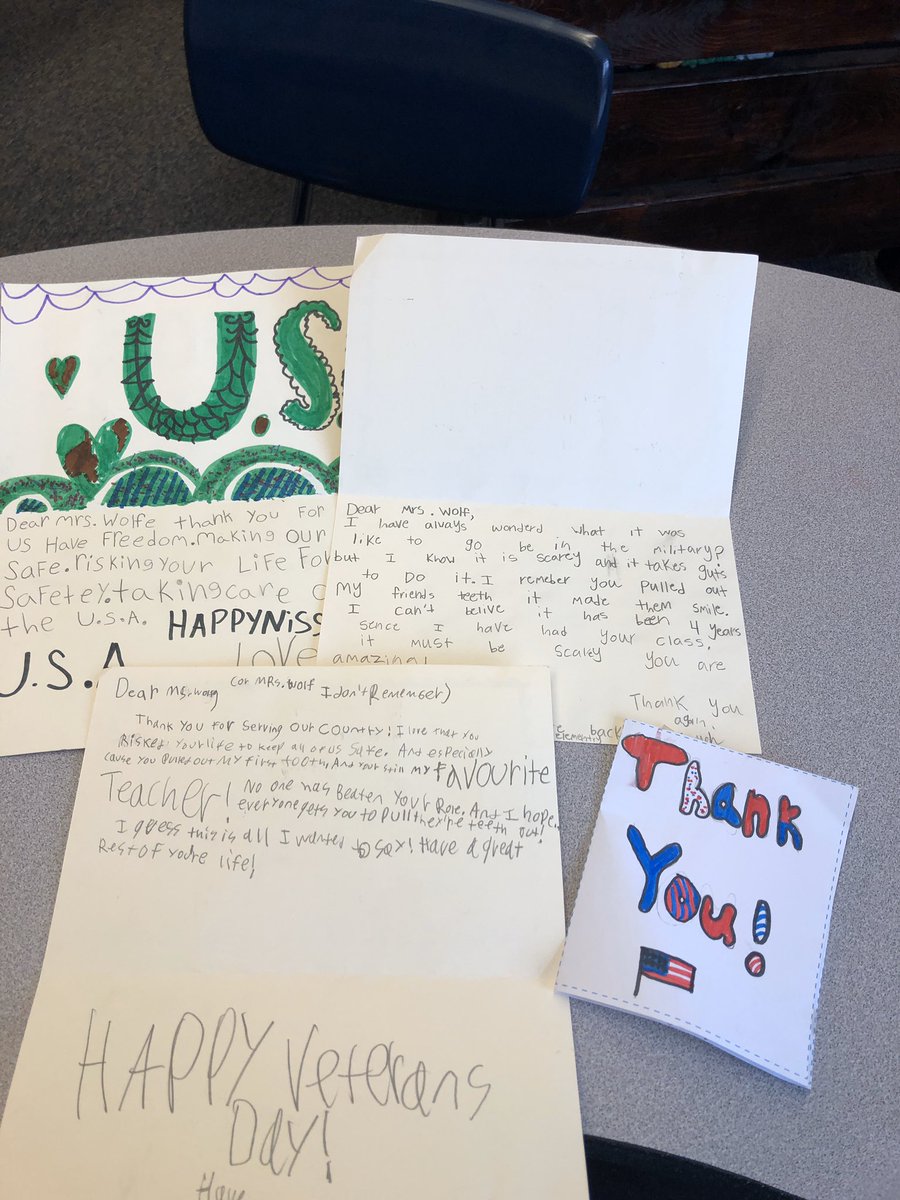 U.S.
Dear Mrs. Wolfe thank You For
US Have Freedom. Making our
Safe. risking Your Life For
Safetey. taking care
the U.S.A. HAPPYNiss
U.S.A. Love
Dear Mrs. Wolf,
I have always wonderd what it was
like to go be in the military?
but I know it is scarey and it takes guts
to Do it. I remeber you pulled out
My friends teeth it made them smile.
I can't belive it has been 4 years
sence I have had your class.
it must be scaley you are
amazing!
Thank you
again.
back
elementry
Dear Ms. (or MRs. Wolf I don't Remember)
Thank You For Serving Our Country! I love that You
Risked Your life to keep all of us Safe. And especially
cause You Pulled out My first tooth, And Your still my Favourite
Teacher! No one has Beaten Your Role. And I hope
everyone gets you to Pull they're teeth out!
I guess this is all I wanted to say! Have a great
Rest of you're life!
HAPPY Veterans
DAY!
Have
Thank
You!